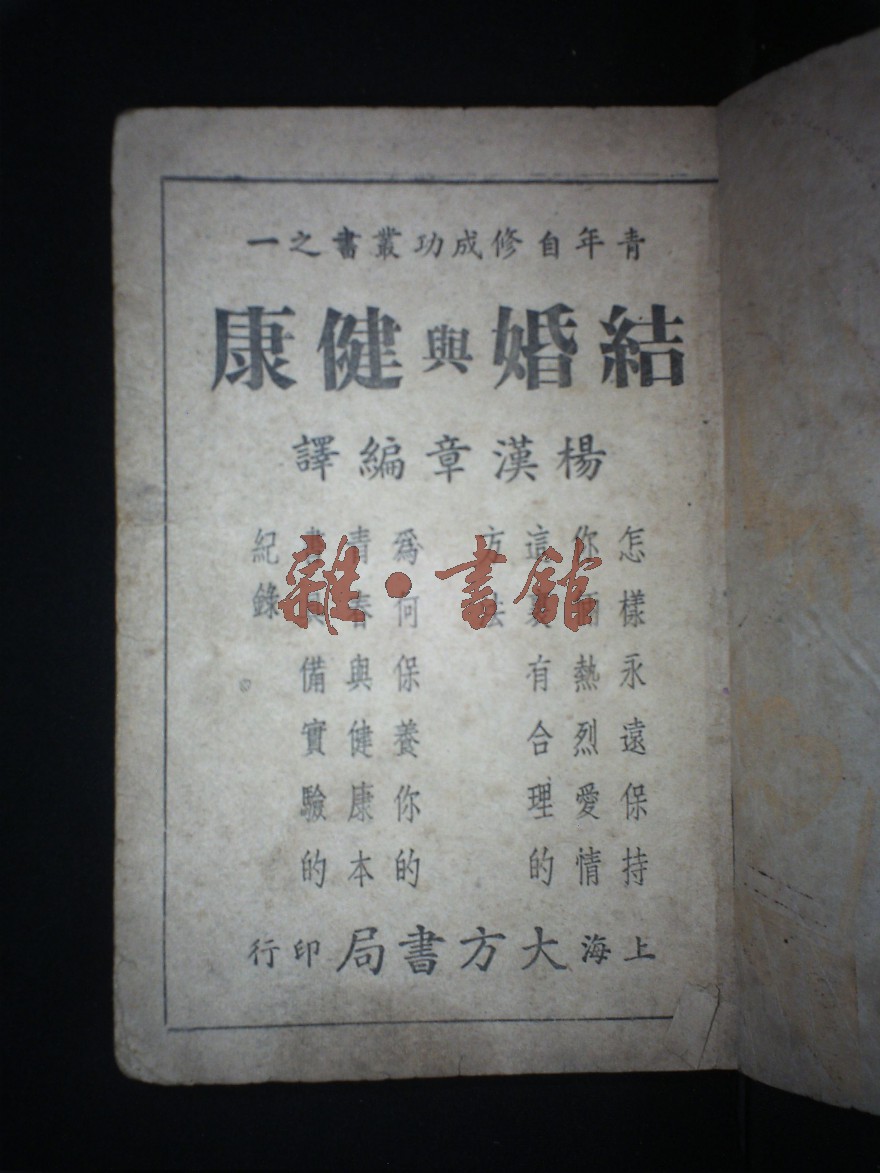 青年自修成功叢書之一
結婚與健康
楊漢章編譯
怎樣永遠保持
你熱烈愛情
這裏有合理的
方法
爲何保養你的
青春與健康本
書具備實驗的
紀錄
上海大方書局印行
雜·書館